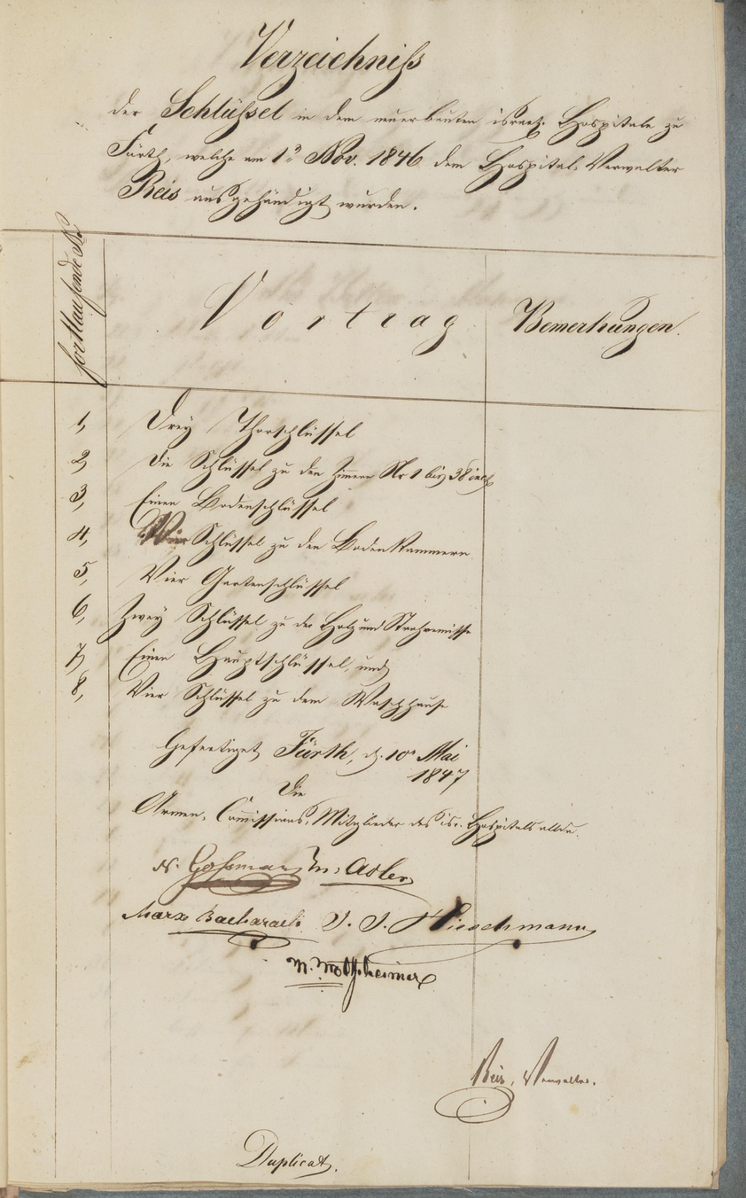 Verzeichniß
der Schlüßel in dem neuerbauten israel. Hospitale zu
Fürth, welche am 13 Nov. 1846 dem Hospital-Verwalter
Reis ausgehändigt wurden.
fortlaufende No
Vortrag
Bemerkungen.
1, Drey Thorschlüssel
2, Die Schlüssel zu den Zimmern Nr 1 bis 38 incl.
3, Einen Bodenschlüssel
4, Vier Schlüssel zu den Bodenkammern
5, Vier Gartenschlüssel
6, Zwey Schlüssel zu der Holz und
7, Einen Hauptschlüssel, und
8, Vier Schlüssel zu dem Waschhause
Gefertiget Fürth, d. 10n Mai
1847
Die
Armen-Commissions-Mitglieder des isr. Hospitals allda.
M. Adler
Marx Bacharach J. J. Hirschmann
Reis, Verwalter.
Duplicat.